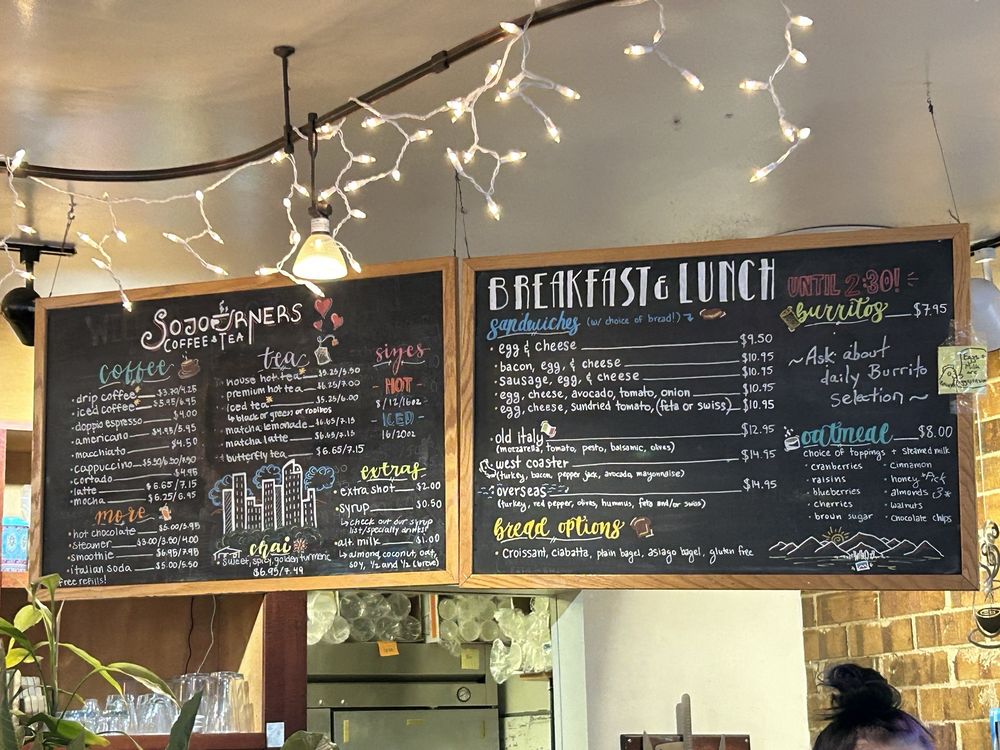 SOJOURNERS
COFFEE & TEA
coffee
• drip coffee 3.70/4.25
• iced coffee 5.95/6.95
• doppio espresso $4.00
• americano $4.95/5.95
• macchiato $4.50
• cappuccino $5.50/6.50/7.50
• cortado $4.95
• latte $6.65/7.15
• mocha $6.25/6.95
more
• hot chocolate $5.00/5.95
• steamer $3.00/3.50/4.00
• smoothie $6.95/7.95
• italian soda $5.00/5.50
free refills!
tea
• house hot tea $5.25/5.50
• premium hot tea $6.25/7.00
• iced tea $5.25/6.00
↳ black or green or rooibos
• matcha lemonade $6.65/7.15
• matcha latte $6.65/7.15
• butterfly tea $6.65/7.15
chai
• sweet, spicy, golden turmeric
$6.95/7.49
sizes
- HOT -
8/12/16oz
- ICED -
16/20oz
extras
• extra shot $2.00
• syrup $0.50
↳ check out our syrup
list/specialty drinks!
• alt milk $1.00
↳ almond, coconut, oat,
soy, 1/2 and 1/2 (breve)
BREAKFAST & LUNCH
UNTIL 2:30!
sandwiches (w/ choice of bread!)
• egg & cheese $9.50
• bacon, egg, & cheese $10.95
• sausage, egg, & cheese $10.95
• egg, cheese, avocado, tomato, onion $10.95
• egg, cheese, sundried tomato, (feta or swiss) $10.95
• old italy $12.95
(mozzarella, tomato, pesto, balsamic, olives)
west coaster $14.95
(turkey, bacon, pepper jack, avocado, mayonnaise)
overseas $14.95
(turkey, red pepper, olives, hummus, feta and/or swiss)
bread options
• Croissant, ciabatta, plain bagel, asiago bagel, gluten free
burritos $7.95
~ Ask about
daily Burrito
selection ~
oatmeal $8.00
choice of toppings + steamed milk
• cranberries
• raisins
• blueberries
• cherries
• brown sugar
• cinnamon
• honey
• almonds
• walnuts
• chocolate chips
*Pick
3*